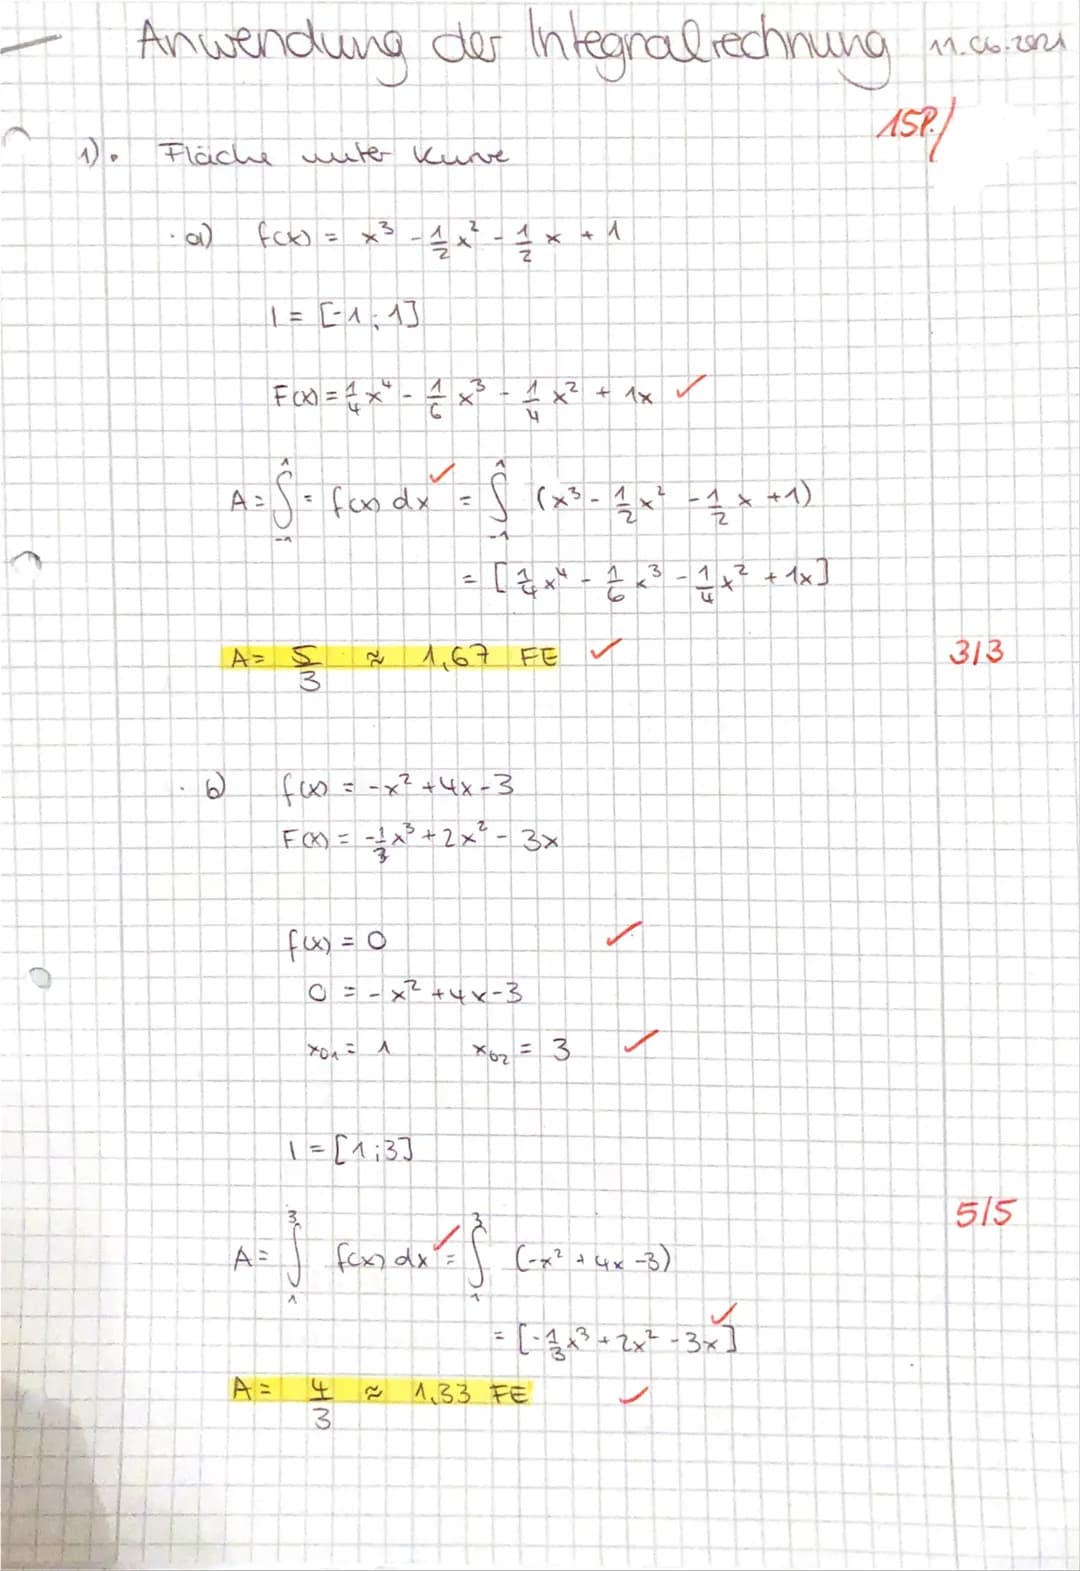 Anwendung der Integralrechnung 11.06.2021
15P./
1). Fläche unter Kurve
a) f(x) = x³ - 1/2 x² - 1/2 x + 1
I = [-1; 1]
F(x) = 1/4 x⁴ - 1/6 x³ - 1/4 x² + 1x ✓
A = ∫₋₁¹ = f(x) dx ✓ = ∫₋₁¹ (x³ - 1/2 x² - 1/2 x + 1)
= [1/4 x⁴ - 1/6 x³ - 1/4 x² + 1x]
A = 5/3 ≈ 1,67 FE ✓ 3/3
b) f(x) = -x² + 4x - 3
F(x) = -1/3 x³ + 2x² - 3x
f(x) = 0 ✓
0 = -x² + 4x - 3
x₀₁ = 1 x₀₂ = 3 ✓
I = [1;3]
5/5
A = ∫₁³ f(x) dx ✓ = ∫₁³ (-x² + 4x - 3)
= [-1/3 x³ + 2x² - 3x] ✓
A = 4/3 ≈ 1,33 FE ✓